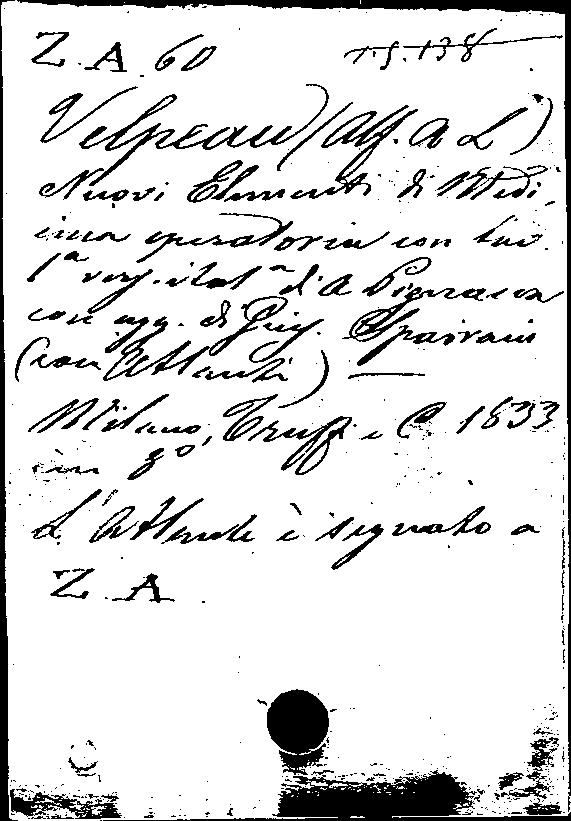 Z. A. 60 T.S.138
Velpeau (Alf. A L)
Nuovi Elementi di Medi-
cina operatoria con tav.
1ª vers. ital.ª di A Pignacca
con agg. di Giu.
(con Atlante) —
Milano, Truffi e C. 1833
in 8º
L'Atlante è segnato a
Z. A.